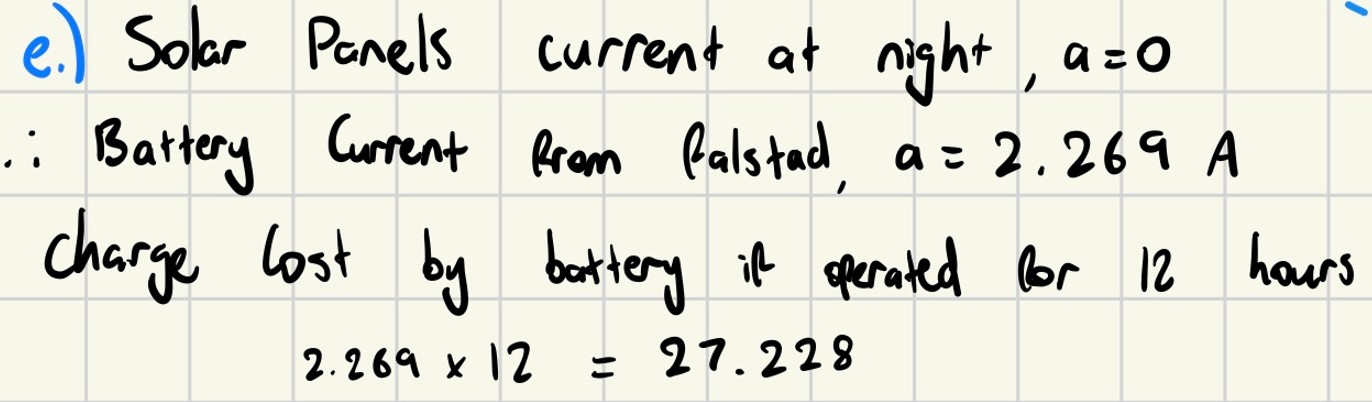 e.) Solar Panels current at night, a=0
∴ Battery Current from falstad, a = 2.269 A
Charge lost by battery if operated for 12 hours
2.269 x 12 = 27.228